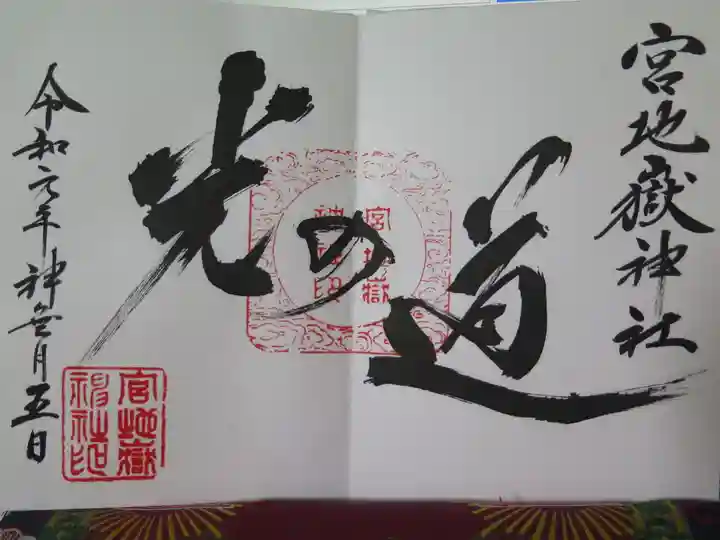 宮地嶽神社
光の道
令和元年神無月五日
宮地嶽
神社印
宮地嶽
神社印